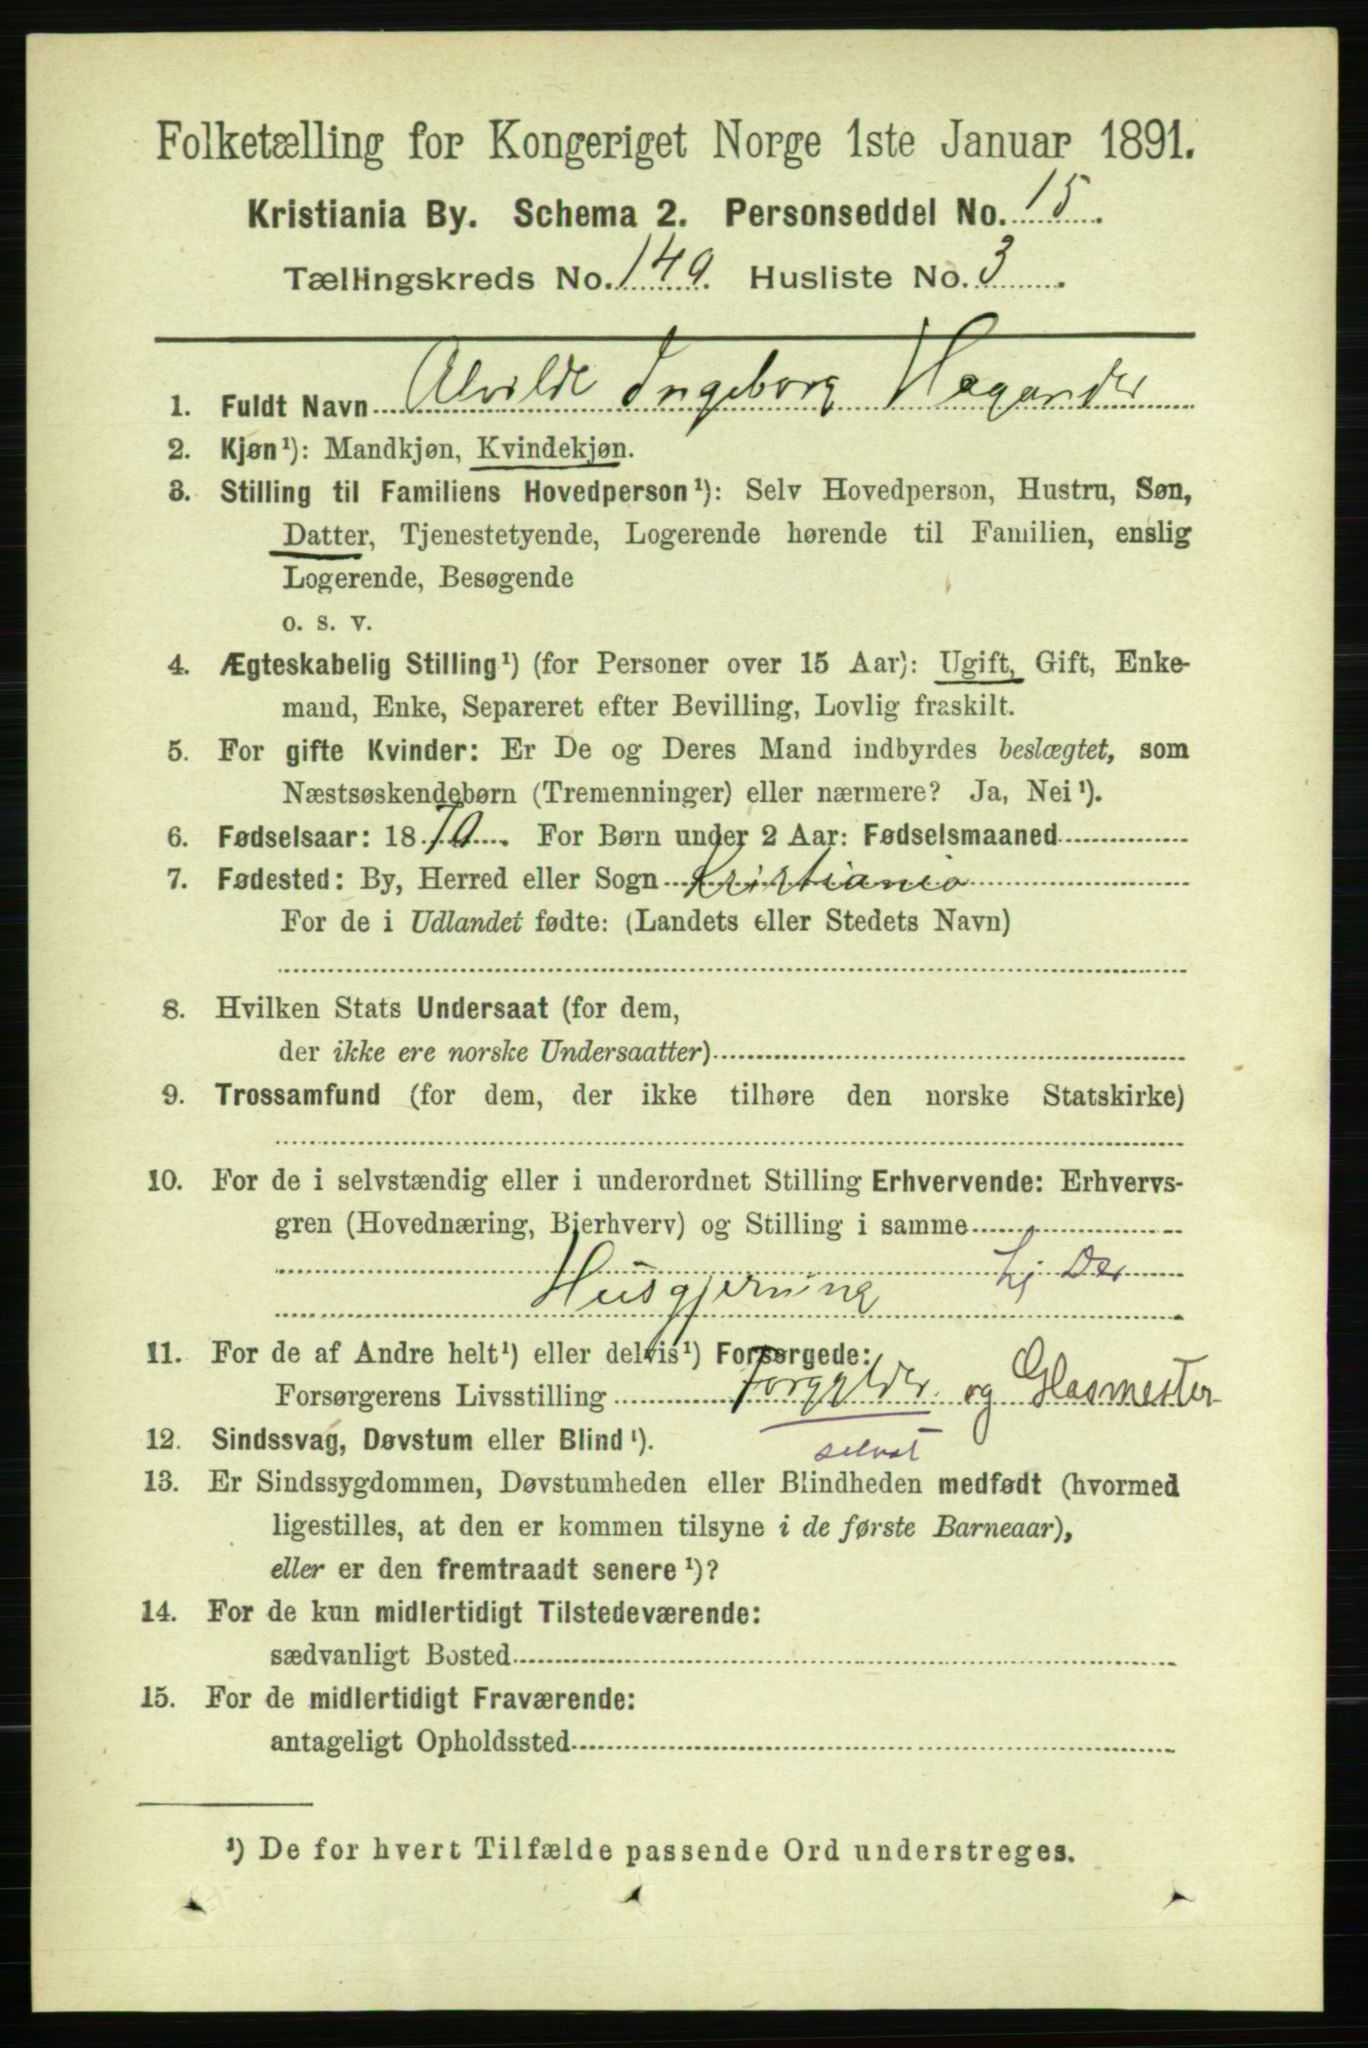 Folketælling for Kongeriget Norge 1ste Januar 1891.
Kristiania By. Schema 2. Personseddel No. 15.
Tællingskreds No. 149. Husliste No. 3.
1. Fuldt Navn Alvilde Ingeborg Hagander
2. Kjøn¹): Mandkjøn, Kvindekjøn.
3. Stilling til Familiens Hovedperson¹): Selv Hovedperson, Hustru, Søn,
Datter, Tjenestetyende, Logerende hørende til Familien, enslig
Logerende, Besøgende
o. s. v.
4. Ægteskabelig Stilling¹) (for Personer over 15 Aar): Ugift, Gift, Enke-
mand, Enke, Separeret efter Bevilling, Lovlig fraskilt.
5. For gifte Kvinder: Er De og Deres Mand indbyrdes beslægtet, som
Næstsøskendebørn (Tremenninger) eller nærmere? Ja, Nei¹).
6. Fødselsaar: 1870. For Børn under 2 Aar: Fødselsmaaned
7. Fødested: By, Herred eller Sogn Kristiania
For de i Udlandet fødte: (Landets eller Stedets Navn)
8. Hvilken Stats Undersaat (for dem,
der ikke ere norske Undersaatter)
9. Trossamfund (for dem, der ikke tilhøre den norske Statskirke)
10. For de i selvstændig eller i underordnet Stilling Erhvervende: Erhvervs-
gren (Hovednæring, Bierhverv) og Stilling i samme
Husgjerning
11. For de af Andre helt¹) eller delvis¹) Forsørgede:
Forsørgerens Livsstilling Forgylder og Glasmester
12. Sindssvag, Døvstum eller Blind¹). selvst
13. Er Sindssygdommen, Døvstumheden eller Blindheden medfødt (hvormed
ligestilles, at den er kommen tilsyne i de første Barneaar),
eller er den fremtraadt senere¹)?
14. For de kun midlertidigt Tilstedeværende:
sædvanligt Bosted
15. For de midlertidigt Fraværende:
antageligt Opholdssted
¹) De for hvert Tilfælde passende Ord understreges.